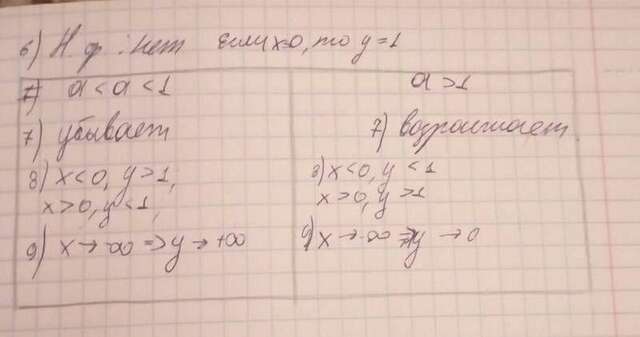 6) Н.ф.: нет если x=0, то y=1
7) a < a < 1
7) убывает
8) x<0, y>1,
x>0, y<1,
9) x→-∞ => y→+∞
a > 1
7) возрастает
8) x<0, y<1
x>0, y>1
9) x→-∞ => y→0